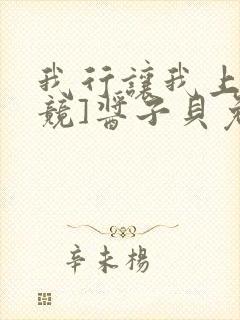 我行讓我上
競]醬子貝
辛未楊